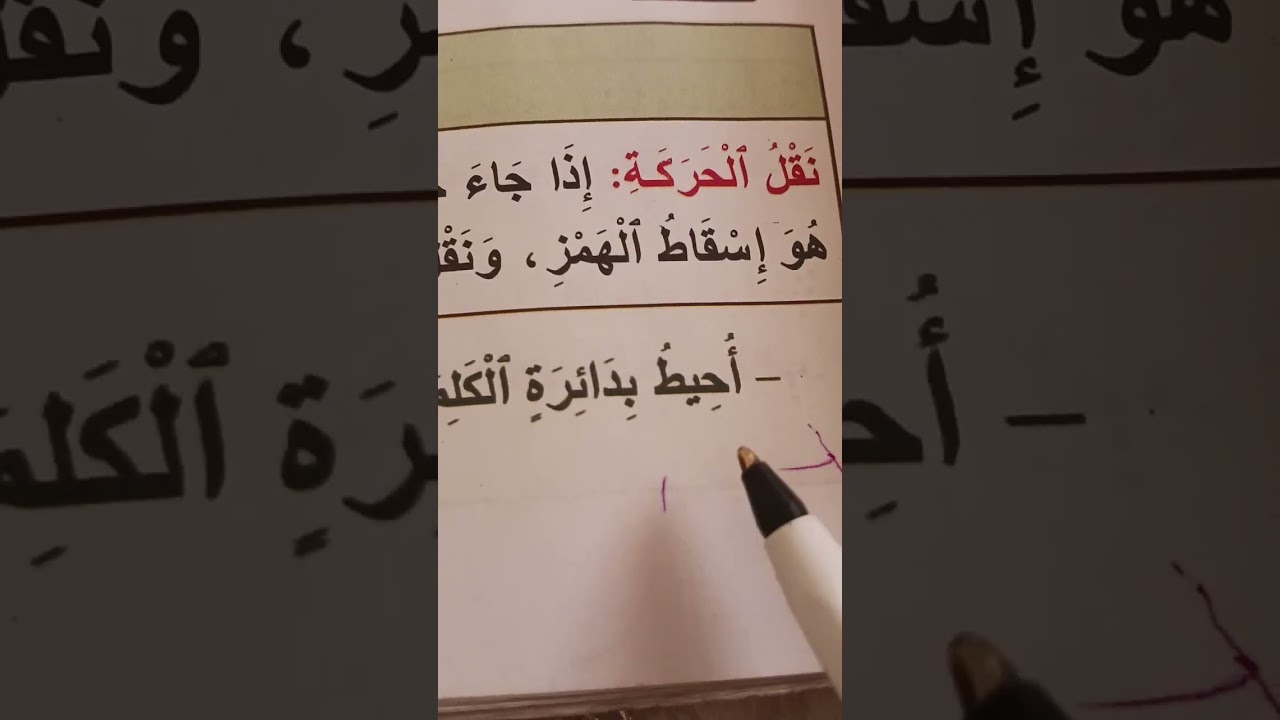 نَقْلُ ٱلْحَرَكَةِ: إِذَا جَاءَ
هُوَ إِسْقَاطُ ٱلْهَمْزِ ، وَنَقْ
– أُحِيطُ بِدَائِرَةٍ ٱلْكَلِمَ